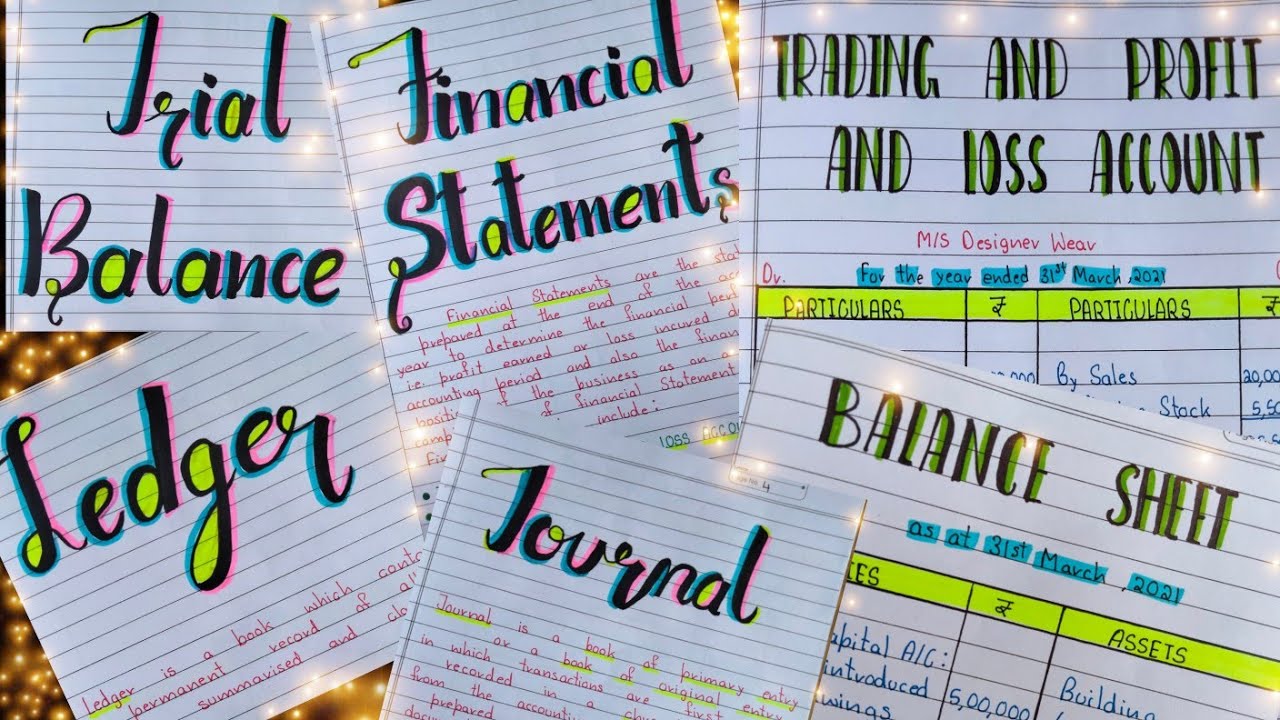 Trial
Balance
Financial
Statements
Financial Statements are the
prepared at the end of the
year to determine the financial
i.e. profit earned or loss incured
accounting period and also the
of the business as an
of financial Statement
include:
LOSS
TRADING AND PROFIT
AND LOSS ACCOUNT
M/S Designer Wear
Dr.
For the year ended 31st March, 2021
PARTICULARS ₹ PARTICULARS ₹
By Sales
Stock
Ledger
Ledger is a book which
permanent record of
summarised and
Journal
Journal is a book of primary entry
or a book of original entry
in which transactions are first
recorded in a
from the
prepared
4
BALANCE SHEET
as at 31st March, 2021
₹ ASSETS
A/C:
introduced 5,00,000 Building